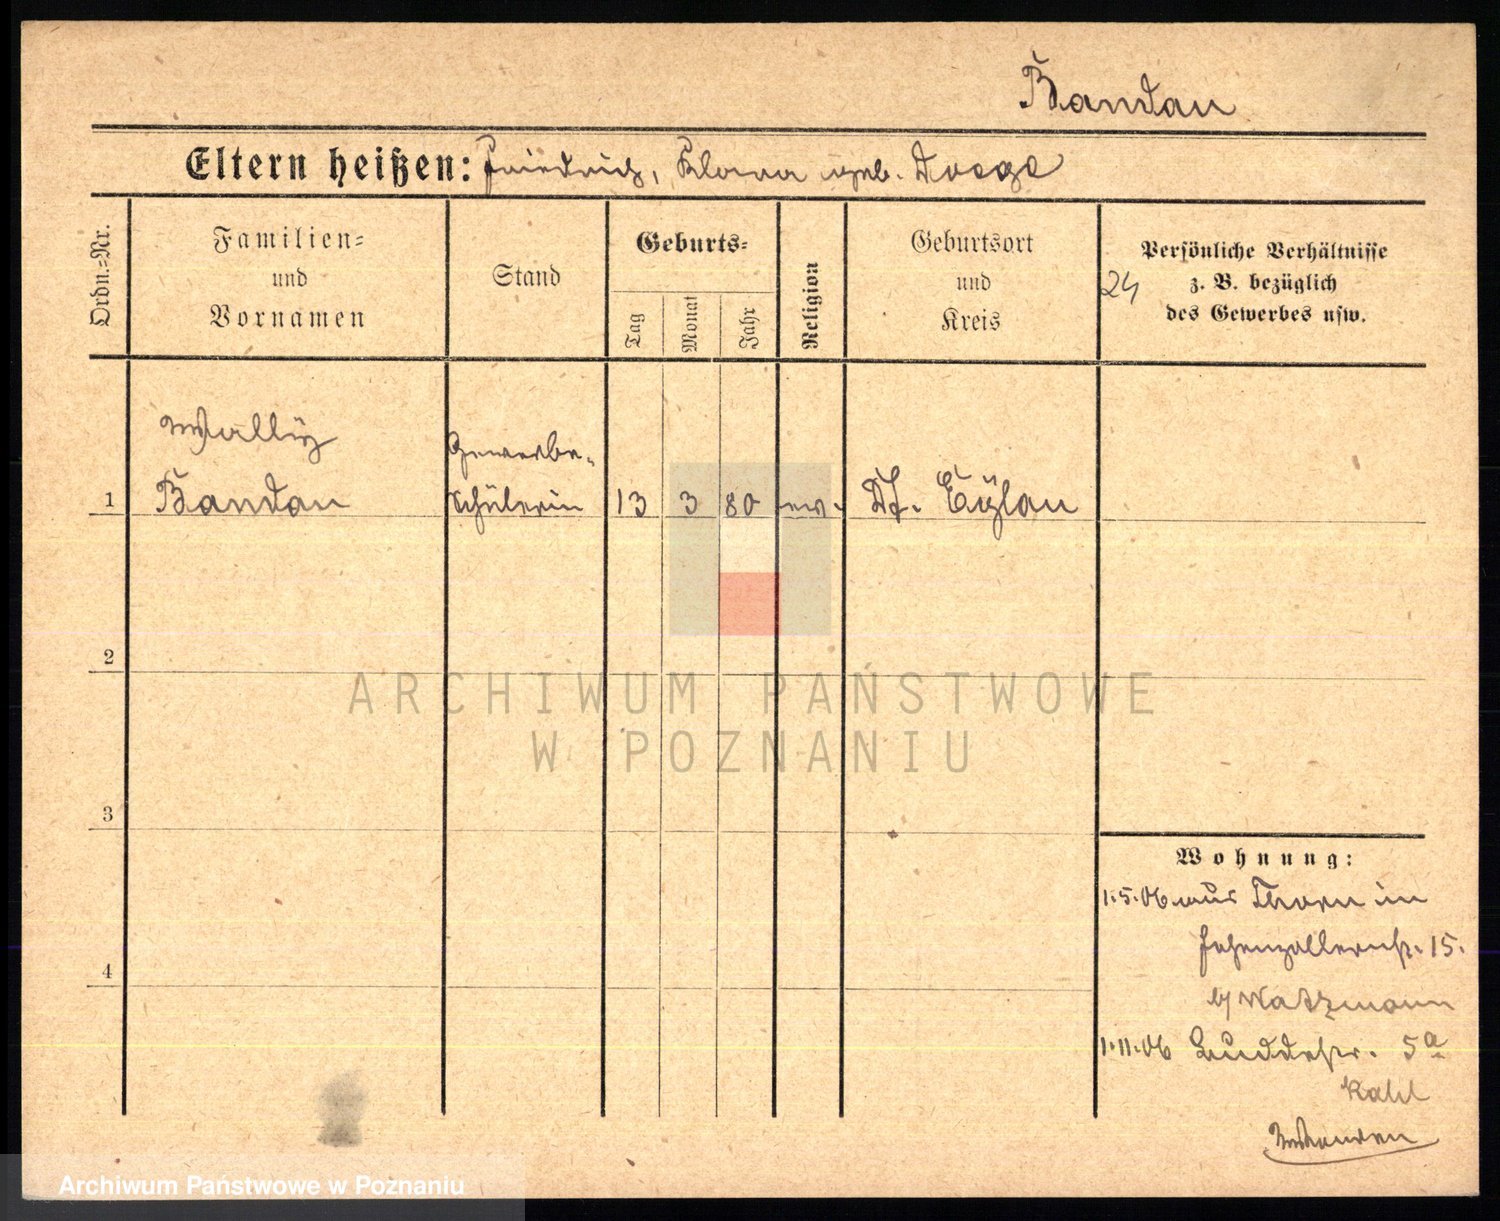 Bandau
Eltern heißen: Friedrich, Klara geb. Doege
Ordn.=Nr.
Familien=
und
Vornamen
Stand
Geburts=
Tag
Monat
Jahr
Religion
Geburtsort
und
Kreis
24
Persönliche Verhältnisse
z. B. bezüglich
des Gewerbes usw.
Wally
Gewerbe-
1 Bandau schülerin 13 3 80 ev. Dt. Eylau
2
ARCHIWUM PAŃSTWOWE
W POZNANIU
3
Wohnung:
1.5.06 aus Thorn in
Hohenzollernstr. 15.
4
b/ Watzmann
1.11.06 Buddestr. 5a
Kahl
Archiwum Państwowe w Poznaniu